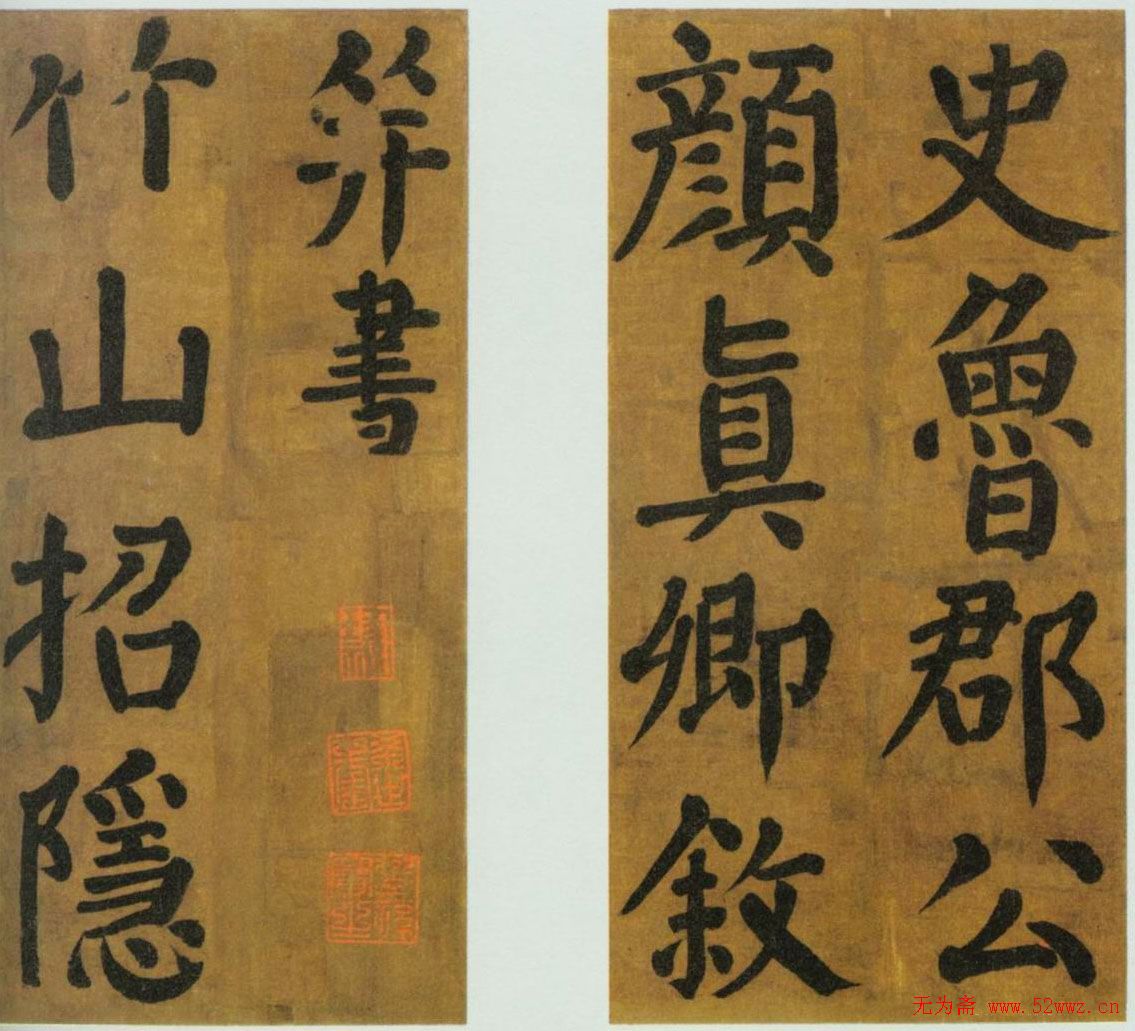 史魯郡公
顏真卿敘
筭書
竹山招隱
无为斋 www.52wwz.cn